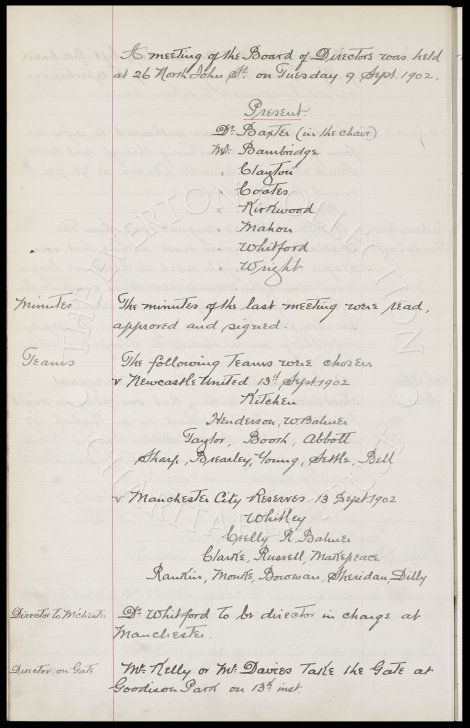 A meeting of the Board of Directors was held
at 26 North John St. on Tuesday 9 Sept. 1902.
Present.
Dr. Baxter (in the chair)
Mr. Bainbridge
" Clayton
" Coates
" Kirkwood
" Mahon
" Whitford
" Wright
Minutes
The minutes of the last meeting were read,
approved and signed.
Teams
The following Teams were chosen
v Newcastle United 13th Sept 1902
Kitchen
Henderson, W Balmer
Taylor, Booth, Abbott
Sharp, Brearley, Young, Settle, Bell
v Manchester City Reserves 13 Sept 1902
Whitley
Crelly R. Balmer
Clarke, Russell, Makepeace
Rankin, Monks, Bowman, Sheridan, Dilly
Director to M'chester
Dr. Whitford to be director in charge at
Manchester.
Director on Gate
Mr. Kelly or Mr. Davies take the Gate at
Goodison Park on 13th inst.
THE EVERTON COLLECTION
CHARITABLE TRUST